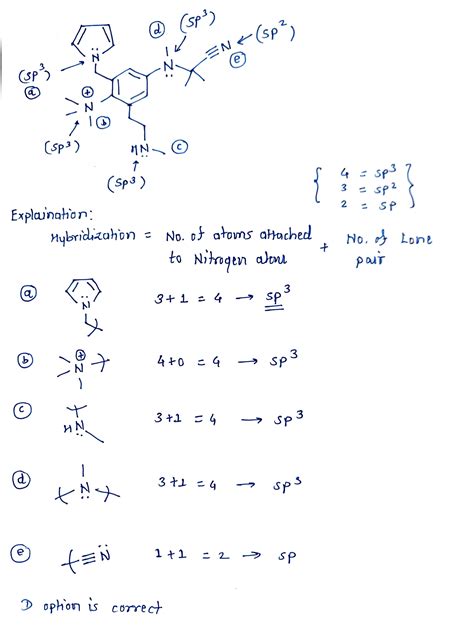 (sp³)
ⓓ
N̈
(sp²)
≡N
ⓔ
N
(sp³)
ⓐ
N
⊕
ⓑ
(sp³)
HN̈
ⓒ
(sp³)
4 = sp³
3 = sp²
2 = sp
Explaination:
Hybridization = No. of atoms attached to Nitrogen atom + No. of Lone pair
ⓐ N̈ 3+1 = 4 → sp³
ⓑ N ⊕ 4+0 = 4 → sp³
ⓒ HN̈ 3+1 = 4 → sp³
ⓓ N̈ 3+1 = 4 → sp³
ⓔ ≡N̈ 1+1 = 2 → sp
D option is correct